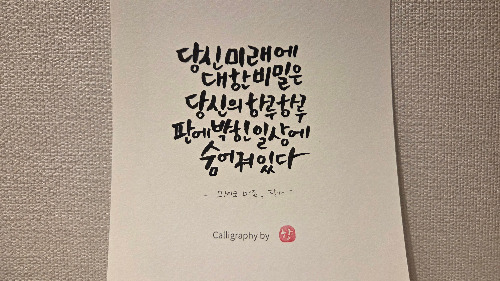 당신미래에
대한비밀은
당신의하루하루
판에박힌일상에
숨어져있다
Calligraphy by